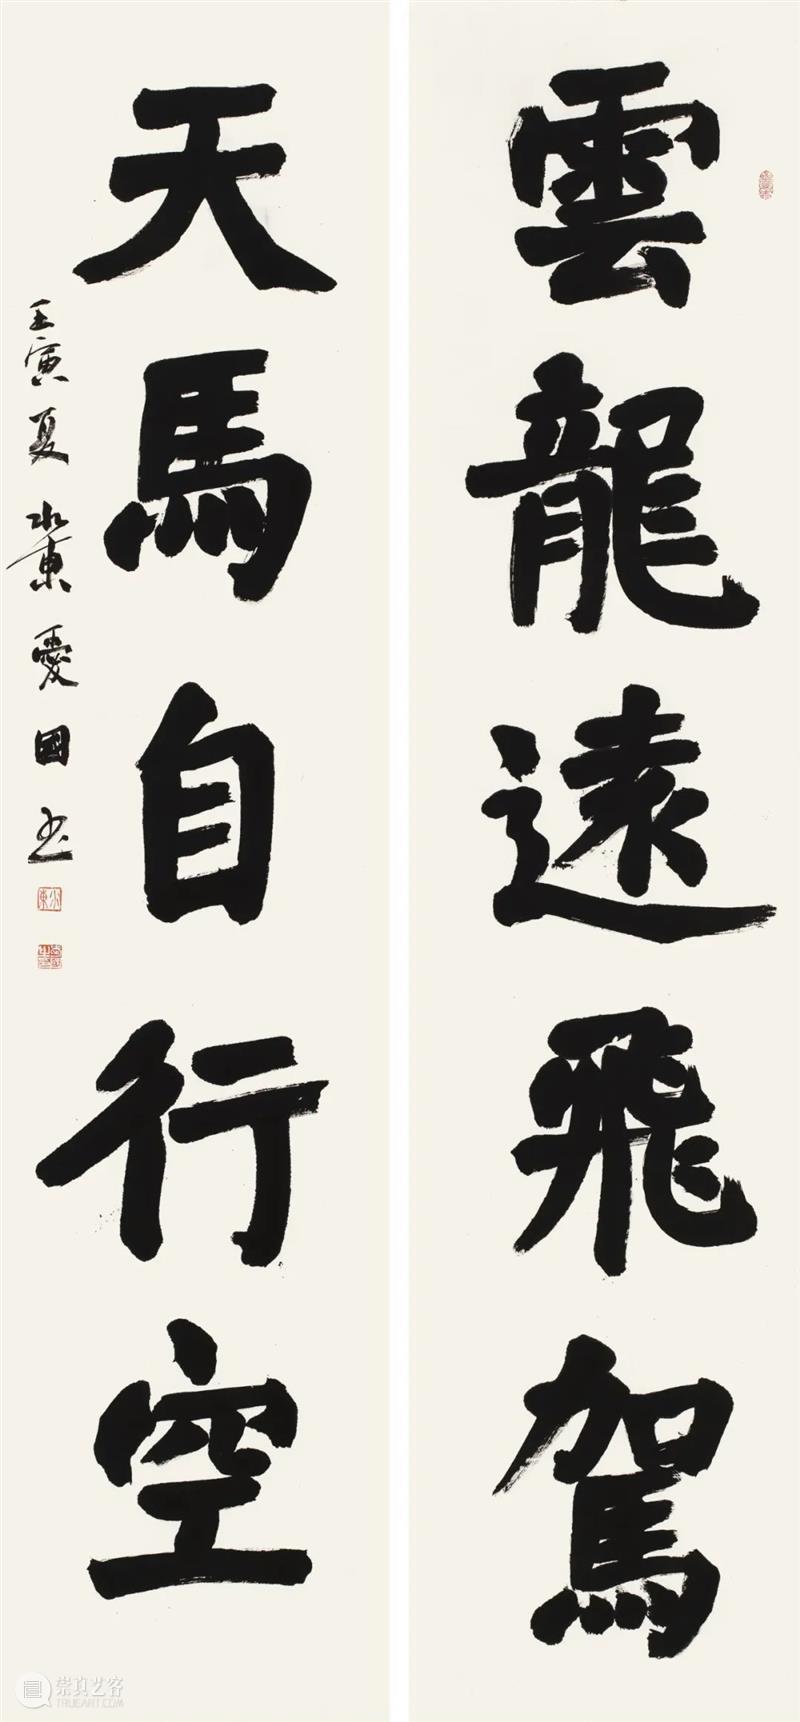 雲龍遠飛駕
天馬自行空
壬寅夏水東愛國书
崇真艺客
TRUEART.COM